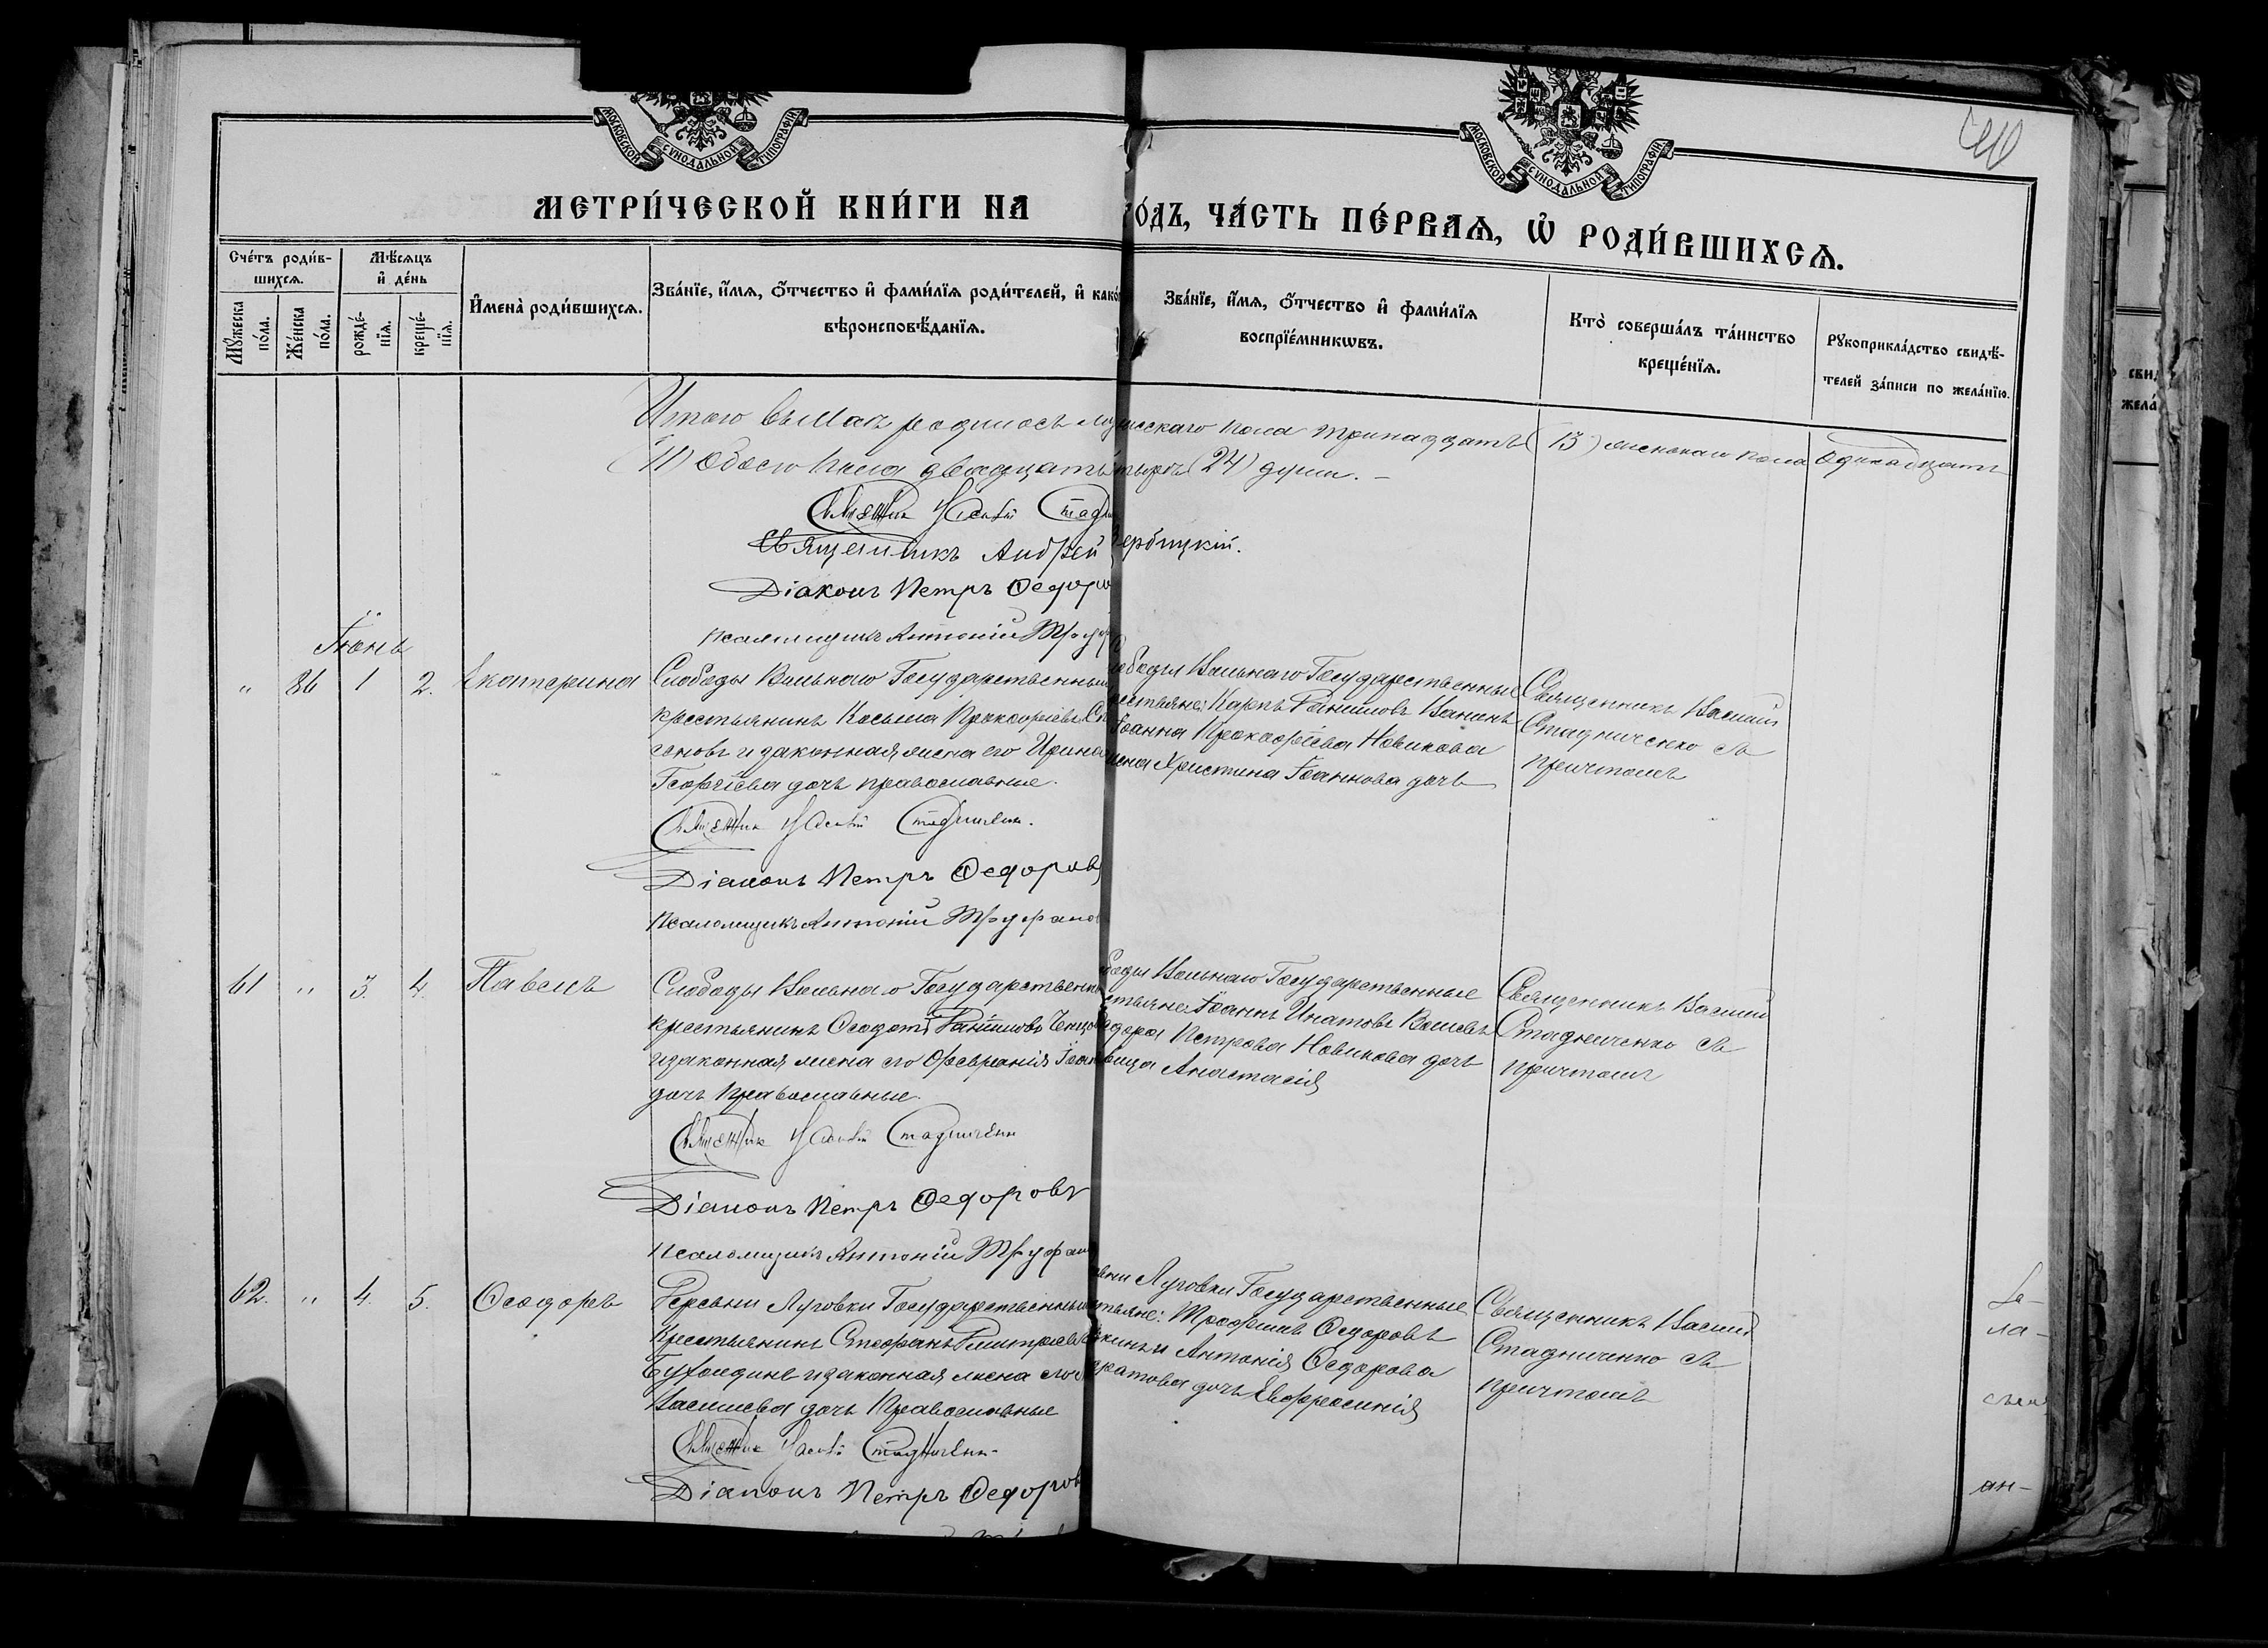 МОСКОВСКОЙ СѴНОДАЛЬНОЙ ТИПОГРАФІИ
МОСКОВСКОЙ СѴНОДАЛЬНОЙ ТИПОГРАФІИ
МЕТРИ́ЧЕСКОЙ КНИ́ГИ НА
О́ДЪ, ЧА́СТЬ ПЕ́РВАѦ, Ѡ҆ РОДИ́ВШИХСѦ.
Сче́тъ роди́в-
шихсѧ.
Мꙋ́жеска
по́ла.
Же́нска
по́ла.
Мѣ́сѧцъ
и҆ де́нь
рожде́-
нїѧ.
креще́-
нїѧ.
И҆мена̀ роди́вшихсѧ.
Зва́нїе, и҆́мѧ, ѻ҆́тчество и҆ фами́лїѧ роди́телей, и҆ како́
вѣроисповѣ́данїѧ.
Зва́нїе, и҆́мѧ, ѻ҆́тчество и҆ фами́лїѧ
воспрїе́мникѡвъ.
Кто̀ соверша́лъ та́инство
креще́нїѧ.
Рꙋкоприкла́дство свидѣ́-
телей за́писи по жела́нїю.
Итого въ Маѣ родилось мужескаго пола тринадцать (13) женскаго пола одинадцать
(11) обоего пола двадцать тыре (24) души. –
Священник Василій Стад
Священникъ Андрей ербицкій.
Діаконъ Петръ Ѳедоро
Псаломщикъ Антоній Труф
Іюнь
" 36 1 2. Екатерина
Слободы Вольнаго Государственный
крестьянинъ Косьма Прокофіевъ
сеновъ и законная жена его Ирина
Георгіева дочь православные.
Священник Василій Стадничен.
Діаконъ Петръ Ѳедоровъ
Псаломщикъ Антоній Труфано
ободы Вольнаго Государственные
рестьяне: Карпъ Даниловъ Ванинъ
Іоанна Прокофіева Новикова
жена Христина Іоаннова дочь
Священникъ Василій
Стадниченко съ
причтомъ
61 " 3. 4. Павелъ
Слободы Вольнаго Государственн
крестьянинъ Ѳеодотъ Даниловъ
и законная жена его Февронія Іоан
дочь Православные.
Священник Василій Стадничен
Діаконъ Петръ Ѳедоровъ
Псаломщикъ Антоній Труфан
боды Вольнаго Государственные
стьяне: Іоаннъ Игнатовъ
одора Петрова Новикова дочь
вица Анастасія
Священникъ Василій
Стадниченко съ
причтомъ
62. " 4. 5. Ѳеодоръ
Деревни Луговки Государственный
Крестьянинъ Стефанъ Дмитріевъ
и законная жена его
Васильева дочь Православные
Священник Василій Стадничен-
Діаконъ Петръ Ѳедоров
вни Луговки Государственные
стьяне: Трофимъ Ѳедоровъ
Антонія Ѳедорова
дочь Евфросинія
Священникъ Василій
Стадниченко съ
причтомъ
ла-
ан-